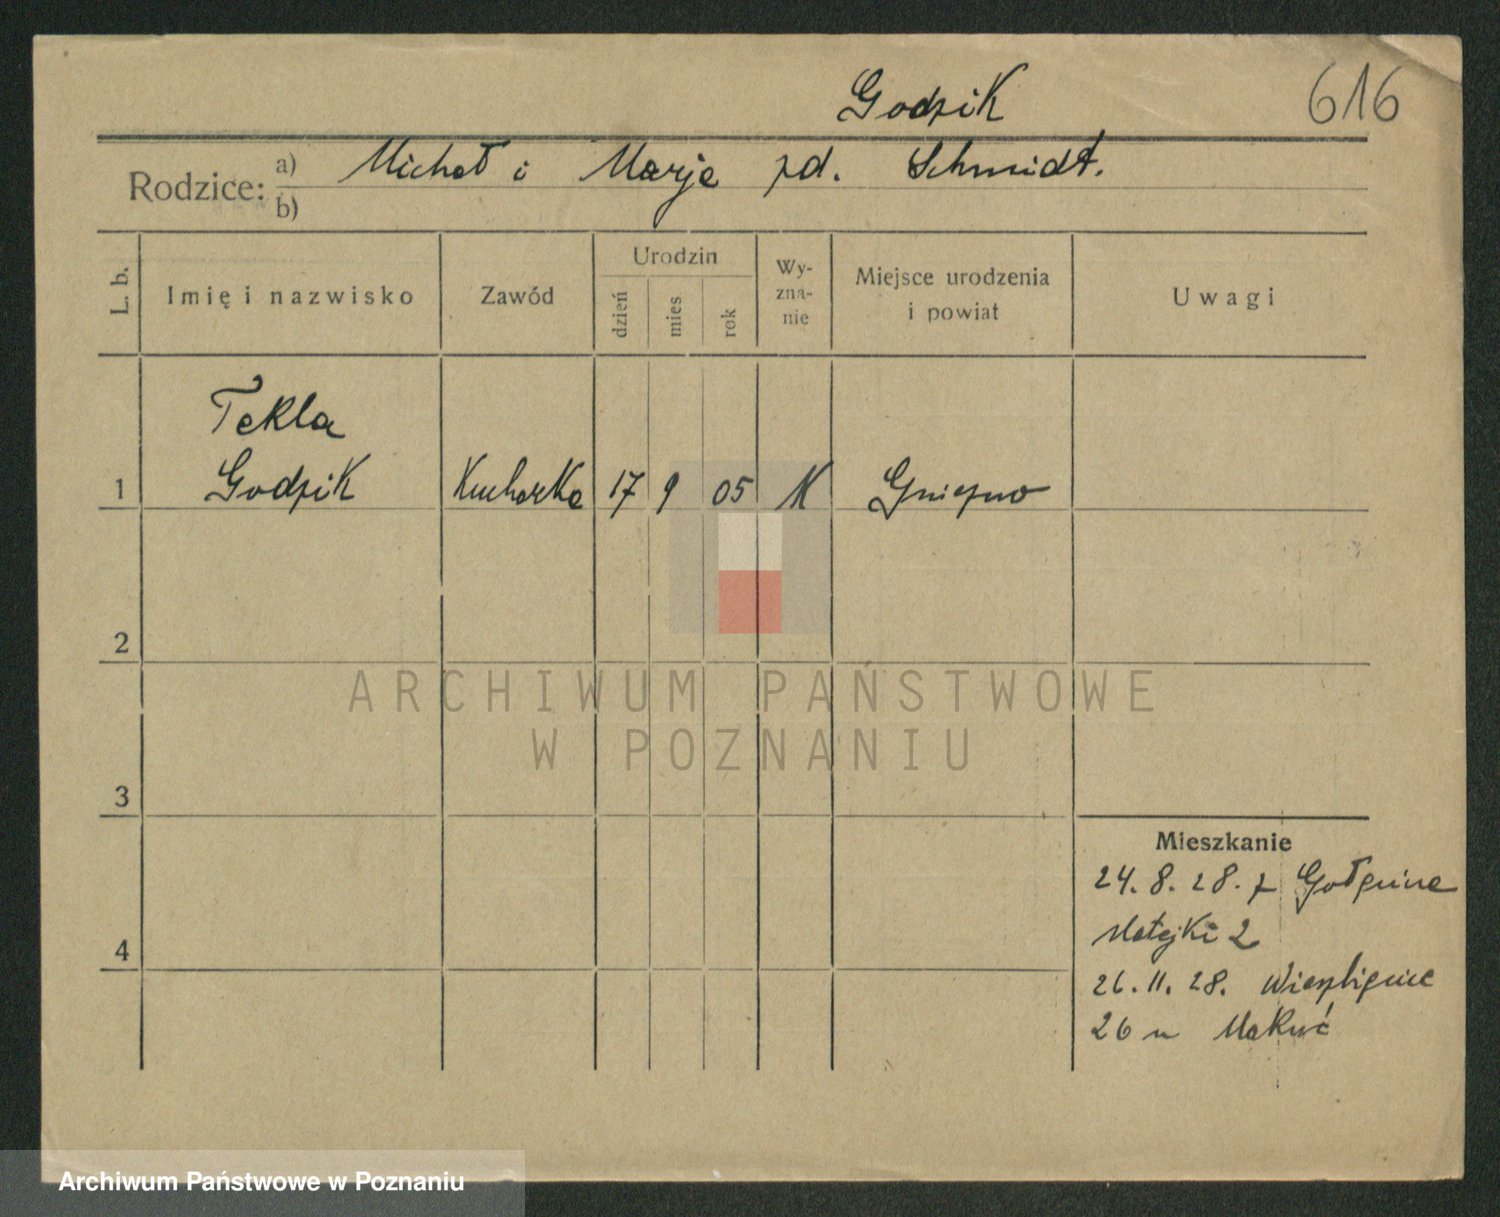 Godzik
616
Rodzice: a) Michał i Marja zd. Schmidt.
b)
L. b.
Imię i nazwisko
Zawód
Urodzin
dzień
mies
rok
Wy-
zna-
nie
Miejsce urodzenia
i powiat
Uwagi
Tekla
1 Godzik Kucharka 17 9 05 K Gniezno
2
ARCHIWUM PAŃSTWOWE
W POZNANIU
3
Mieszkanie
24. 8. 28. z
Matejki 2
4
26. 11. 28. Wierzbięcice
26 u
Archiwum Państwowe w Poznaniu